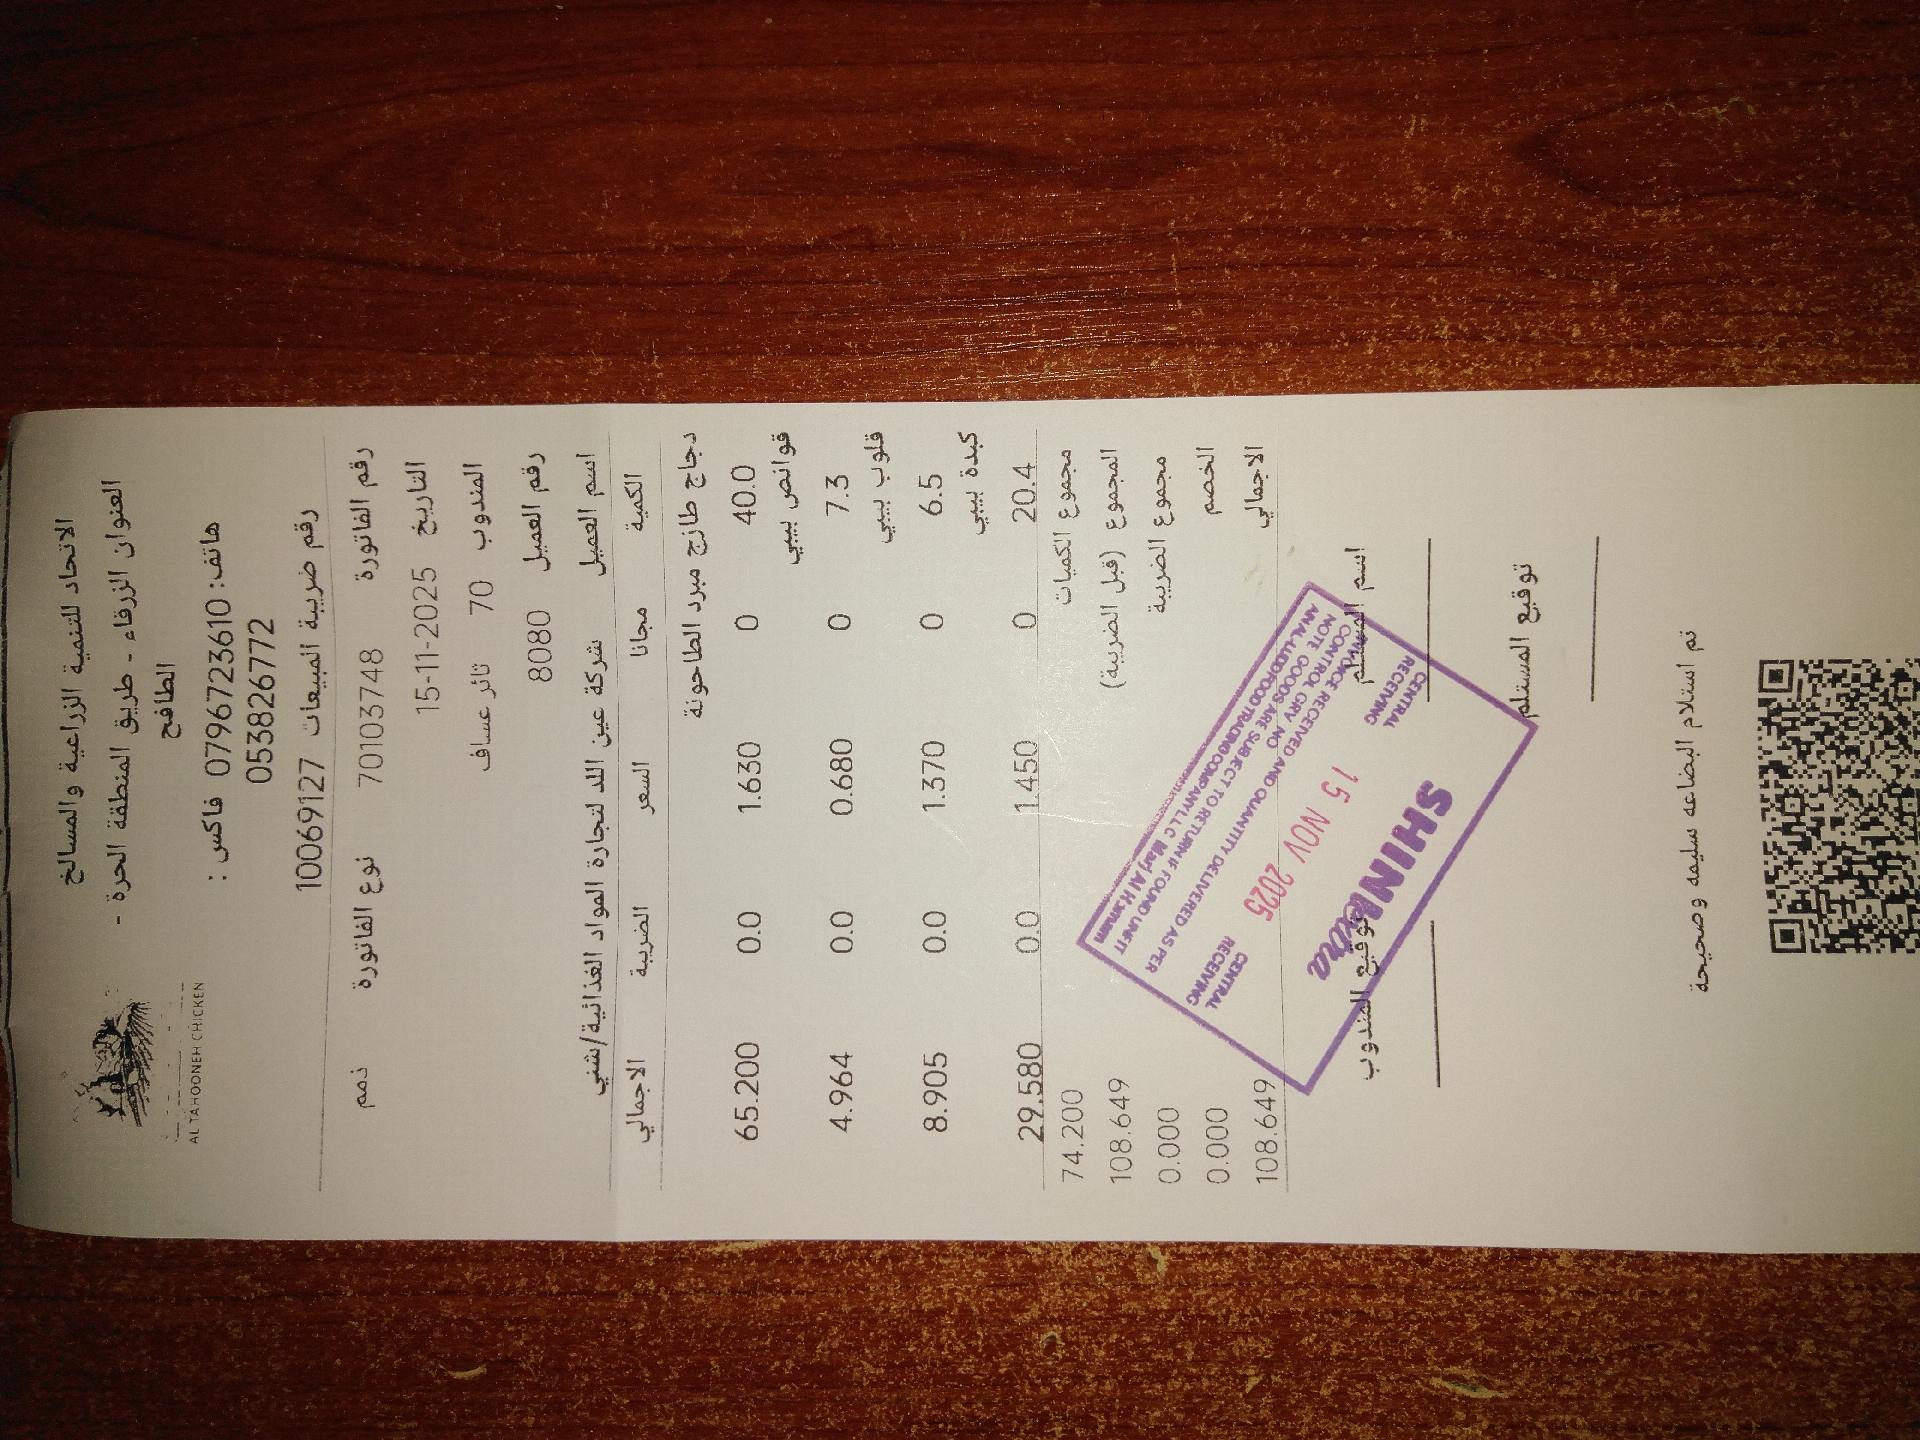 AL TAHOONEH CHICKEN
الاتحاد للتنمية الزراعية والمسالخ
العنوان الزرقاء - طريق المنطقة الحرة -
الطافح
هاتف: 0796723610 فاكس :
053826772
رقم ضريبة المبيعات 10069127
رقم الفاتورة 70103748 نوع الفاتورة ذمم
التاريخ 15-11-2025
المندوب 70 ثائر عساف
رقم العميل 8080
اسم العميل شركة عين اللد لتجارة المواد الغذائية/شني
الكمية مجانا السعر الضريبة الاجمالي
دجاج طازج مبرد الطاحونة
40.0 0 1.630 0.0 65.200
قوانص بيبي
7.3 0 0.680 0.0 4.964
قلوب بيبي
6.5 0 1.370 0.0 8.905
كبدة بيبي
20.4 0 1.450 0.0 29.580
مجموع الكميات 74.200
المجموع (قبل الضريبة) 108.649
مجموع الضريبة 0.000
الخصم 0.000
الاجمالي 108.649
اسم المستلم توقيع المندوب
توقيع المستلم
تم استلام البضاعه سليمه وصحيحة
SHINI
CENTRAL RECEIVING
15 NOV 2025
CENTRAL RECEIVING
RECEIVED AND QUANTITY DELIVERED AS PER
CONTROL GRV. NO
NOTE GOODS ARE SUBJECT TO RETURN IF FOUND UNFIT
FOOD TRADING COMPANY LLC Marj Al Hamam